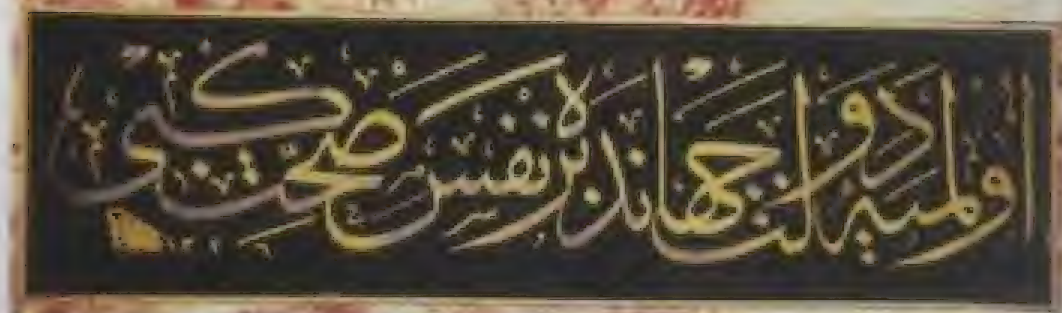 اولميه دولت جهانده بر نفس صحت كبى